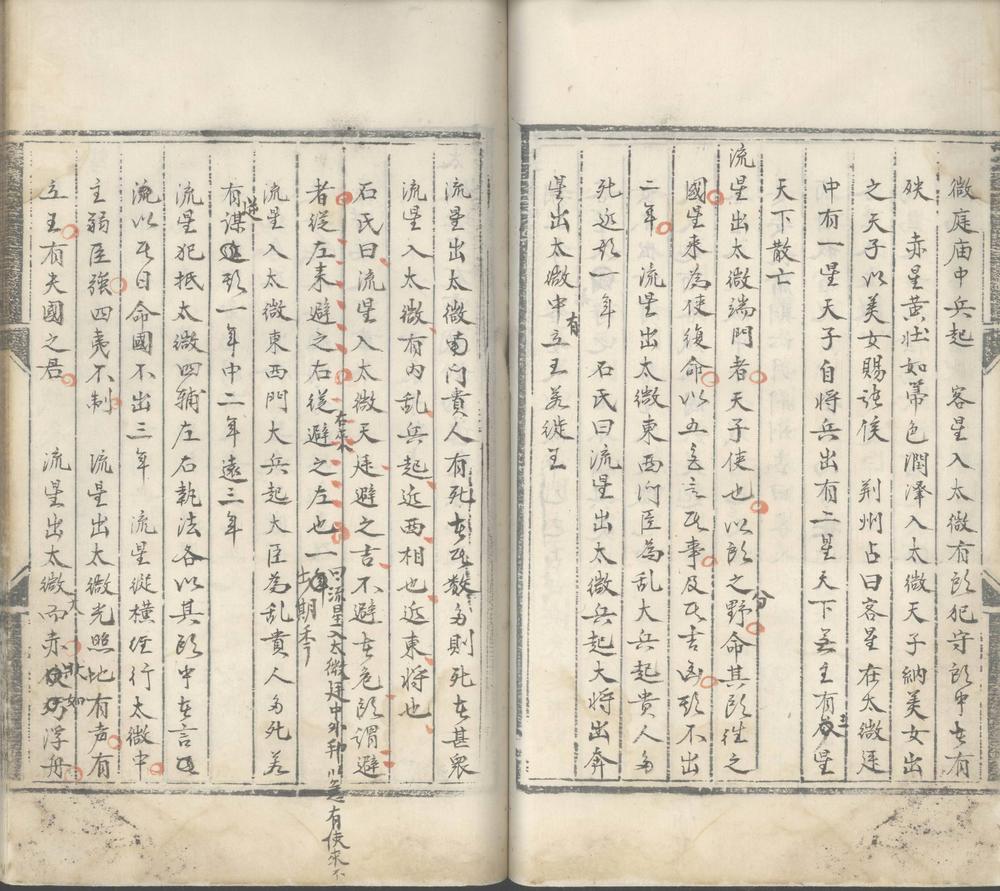 微庭庙中兵起　客星入太微有所犯守所中者有
殃　赤星黄壮如苇色潤澤入太微天子納美女出
之天子以美女賜諸侯　荆州占曰客星在太微廷
中有一星天子自将兵出有二星天下无主有三星
天下散亡
流星出太微端門者天子使也以所之野命其所往之
國星来為使復命以五色言其事及其吉凶期不出
二年　流星出太微東西門臣為乱大兵起貴人多
死近期一年　石氏曰流星出太微兵起大将出奔
星出太微中有立王若徙王
流星出太微南門貴人有死者其数多則死者甚衆
流星入太微有内乱兵起近西相也近東将也
石氏曰流星入太微天廷避之吉不避者危所謂避
者従左来避之右従右来避之左也一曰流星入太微廷中外和以色占有使来不出期季
流星入太微東西門大兵起大臣為乱貴人多死若
有謀逆期一年中二年遠三年
流星犯抵太微四輔左右執法各以其所中者言
流以其日命國不出三年　流星縦横經行太微中
主弱臣強四夷不制　流星出太微光照地有声有
立王有失國之君　流星出太微而赤大如浮舟